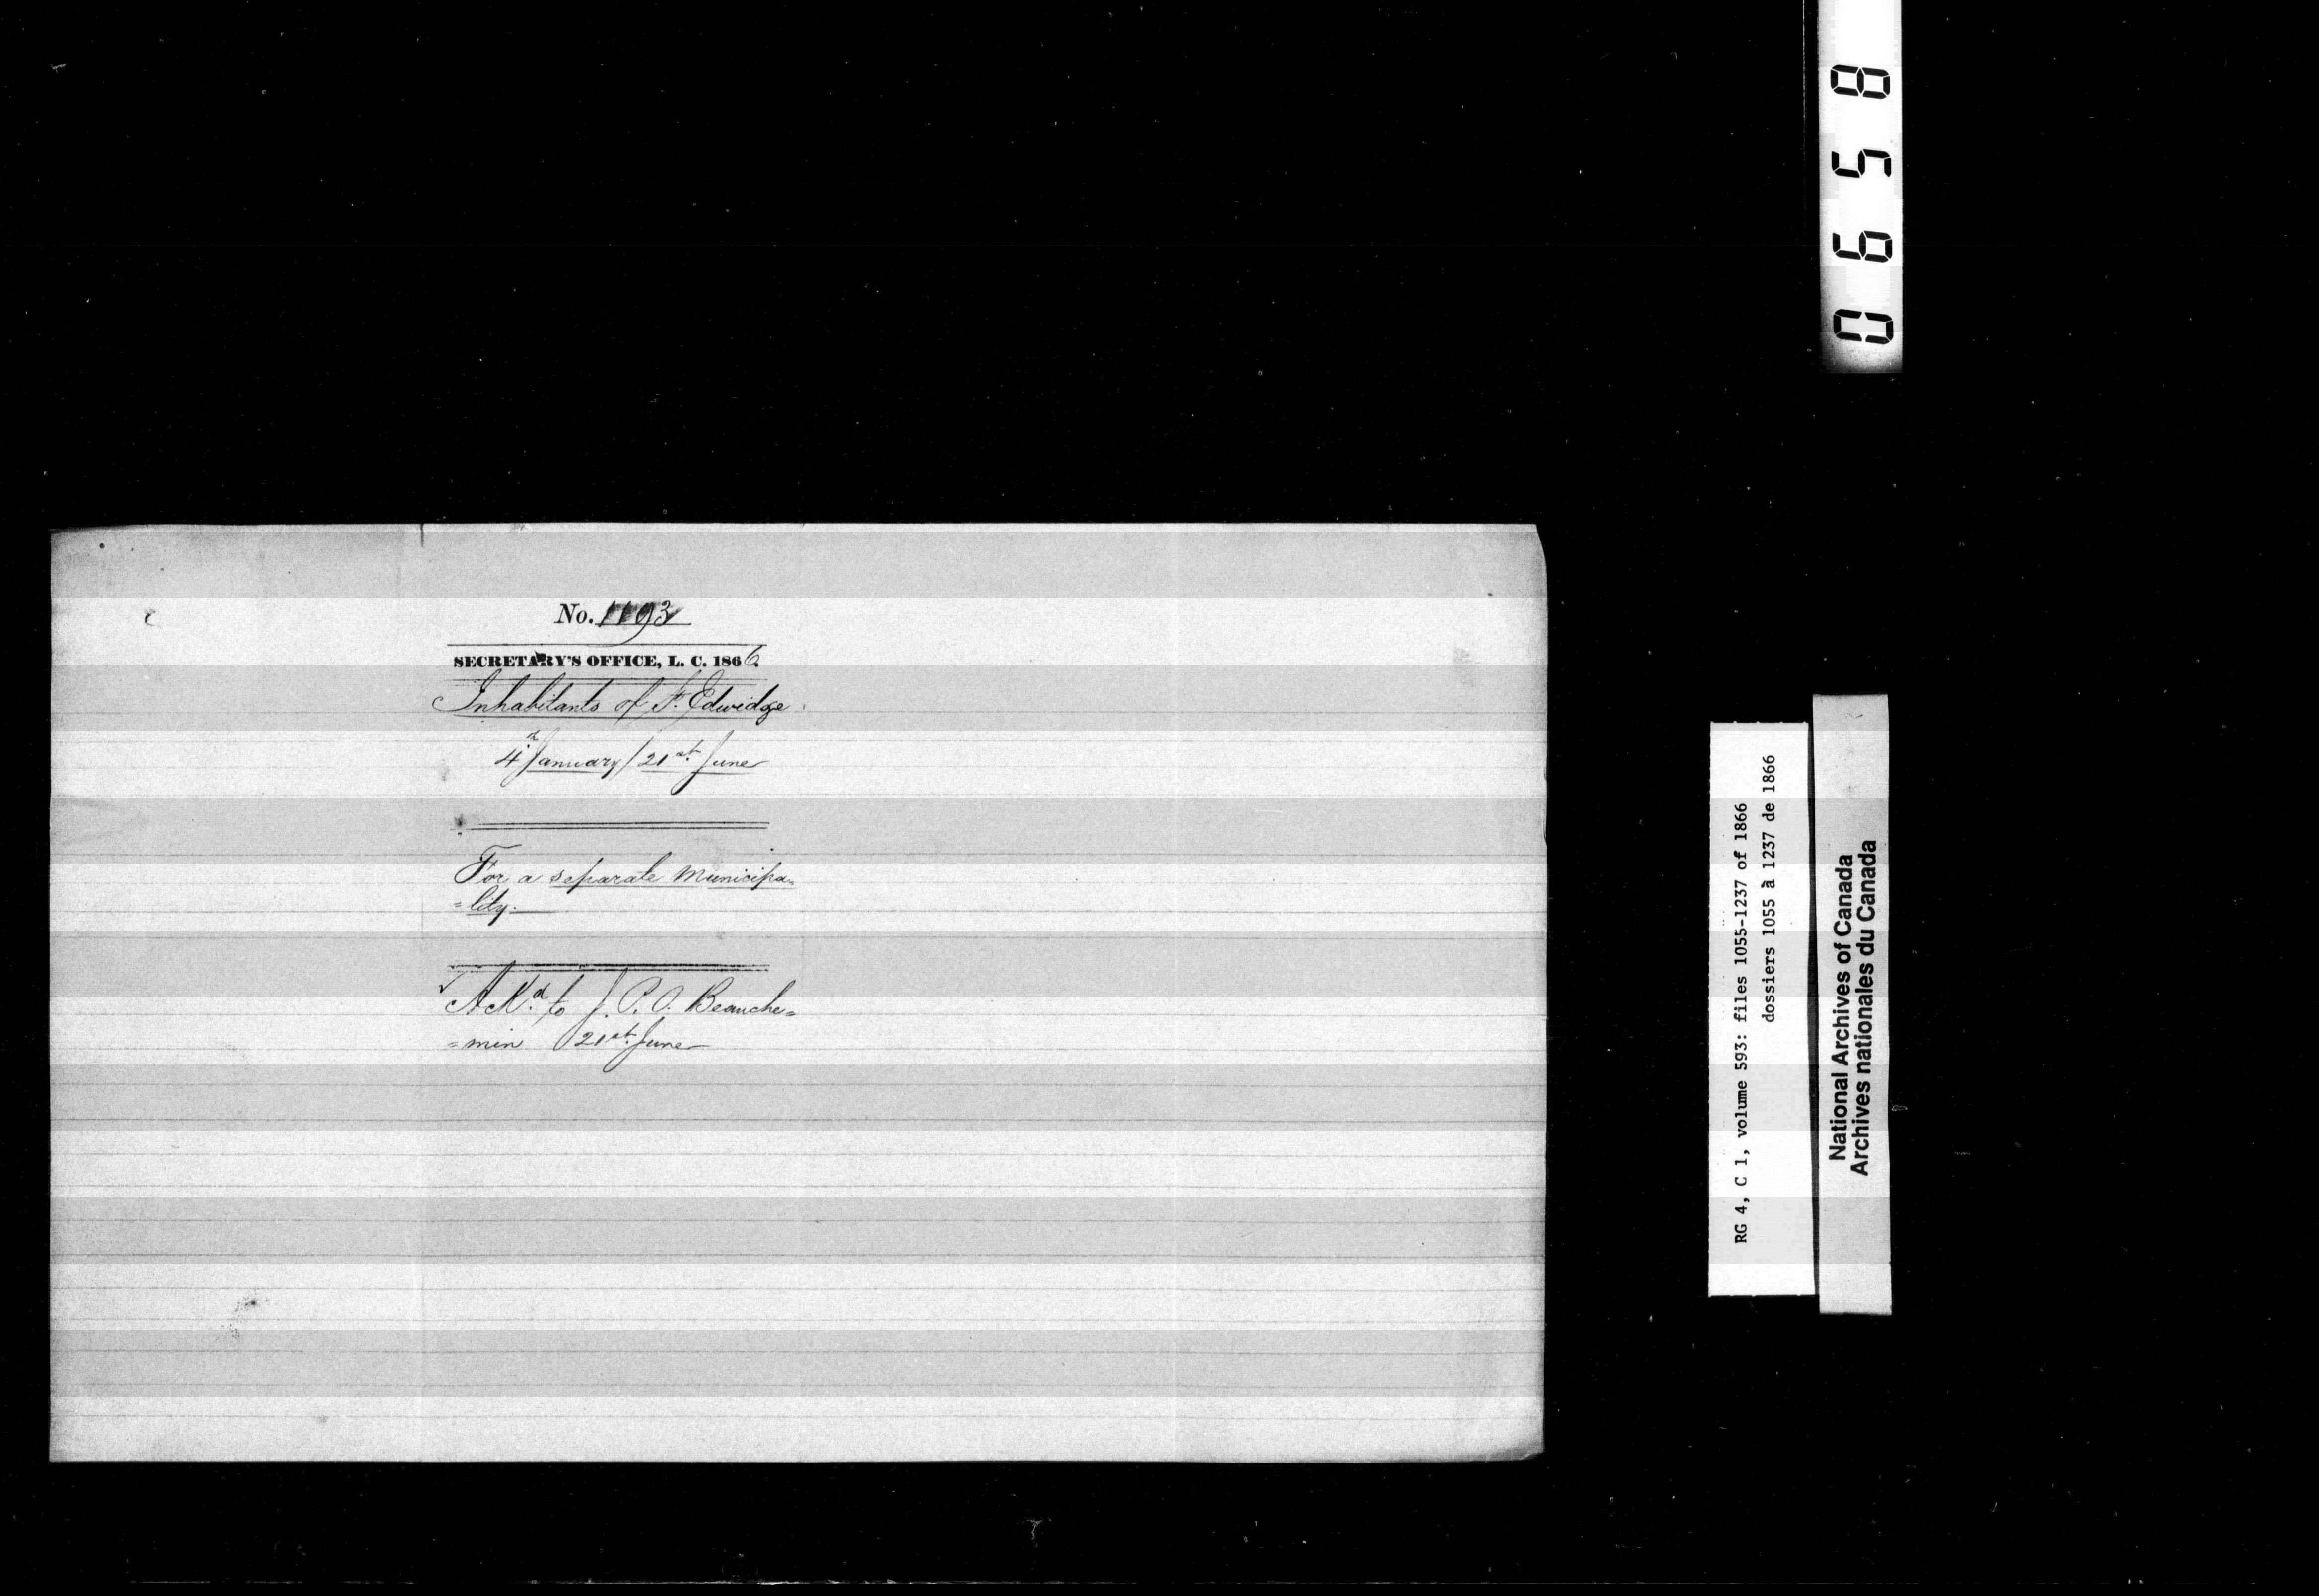 No. 1193
SECRETARY'S OFFICE, L. C. 1866.
Inhabitants of St. Edwidge
4th January / 21st June
For a separate Municipa=
=lity.
Ackd. to J. P. O. Beauche=
=min 21st June
0658
RG 4, C 1, volume 593: files 1055-1237 of 1866
dossiers 1055 à 1237 de 1866
National Archives of Canada
Archives nationales du Canada